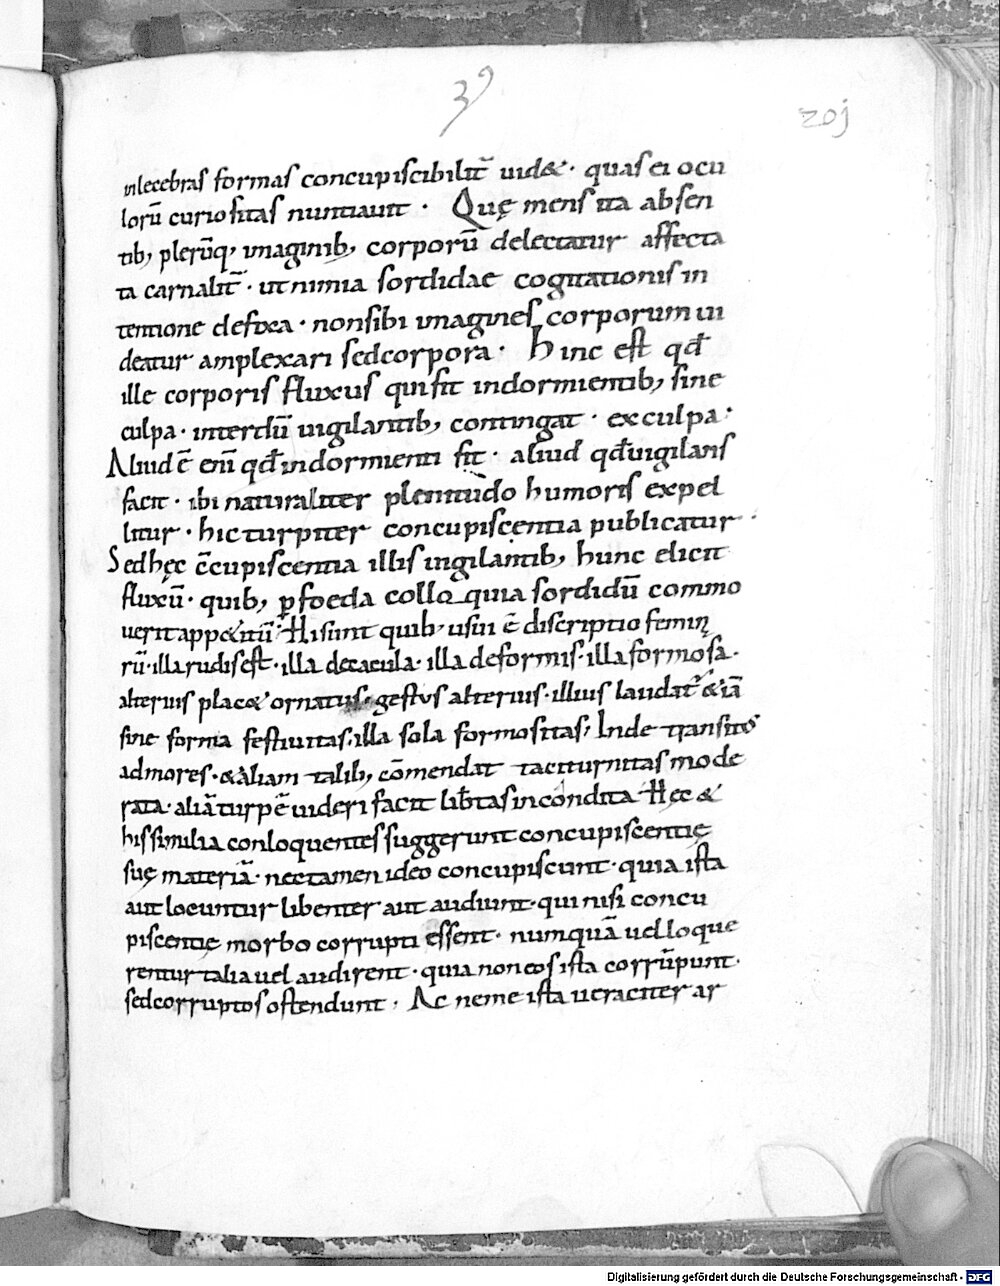 39
201
inlecebras formas concupiscibilit̄ uid&· quas ei ocu
lorū curiositas nuntiauit · Quę mens ita absen
tib; plerūq; imaginib; corporū delectatur affecta
ta carnalit̄ · ut nimia sordidae cogitationis in
tentione defixa · non sibi imagines corporum ui
deatur amplexari sed corpora · Hinc est qđ
ille corporis fluxus qui fit indormientib; sine
culpa · interdū uigilantib; contingat · ex culpa ·
Aliud ē eni̅ qđ indormienti fit · aliud qđ uigilans
facit · ibi naturaliter plenitudo humoris expel
litur · hic turpiter concupiscentia publicatur ·
Sed hęc c̄cupiscentia illis uigilantib; hunc elicit
fluxū · quib; ꝑ foeda colloquia sordidū commo
uerit app&itū · Hi sunt quib; usui ē discriptio feminą
rū · illa rudis est · illa decacula · illa deformis · illa formosa ·
alterius plac& ornatus · gestus alterius · illius laudat̄ &iā
sine forma festiuitas · illa sola formositas; Inde transito
ad mores · & aliam talib; cōmendat taciturnitas mode
rata · aliā turpē uideri facit lib̄tas incondita Hęc &
his similia conloquentes suggerunt concupiscentię
suę materiā · nec tamen ideo concupiscunt · quia ista
aut locuntur libenter aut audiunt · qui nisi concu
piscentię morbo corrupti essent · numquā uel loque
rentur talia uel audirent · quia non eos ista corrūpunt ·
sed corruptos ostendunt · Ac ne me ista ueraciter ar
Digitalisierung gefördert durch die Deutsche Forschungsgemeinschaft - DFG